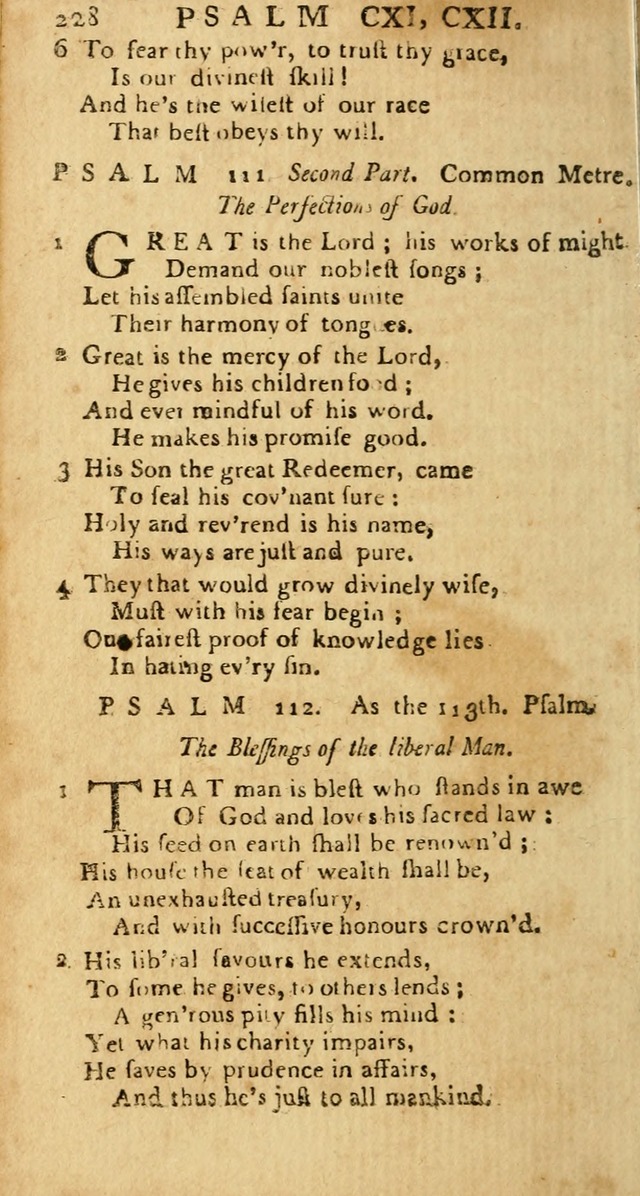 228 PSALM CXI, CXII.
6 To fear thy pow'r, to truſt thy grace,
Is our divineſt ſkill!
And he's the wiſeſt of our race
That beſt obeys thy will.
PSALM 111 Second Part. Common Metre.
The Perfections of God.
1 GREAT is the Lord; his works of might
Demand our nobleſt ſongs;
Let his aſſembled ſaints unite
Their harmony of tongues.
2 Great is the mercy of the Lord,
He gives his children food;
And ever mindful of his word.
He makes his promiſe good.
3 His Son the great Redeemer, came
To ſeal his cov'nant ſure:
Holy and rev'rend is his name,
His ways are juſt and pure.
4 They that would grow divinely wiſe,
Muſt with his fear begin;
Our faireſt proof of knowledge lies
In hating ev'ry ſin.
PSALM 112. As the 113th. Pſalm.
The Bleſſings of the liberal Man.
1 THAT man is bleſt who ſtands in awe
Of God and loves his ſacred law:
His ſeed on earth ſhall be renown'd;
His houſe the ſeat of wealth ſhall be,
An unexhauſted treaſury,
And with ſucceſſive honours crown'd.
2. His lib'ral favours he extends,
To ſome he gives, to others lends;
A gen'rous pity fills his mind:
Yet what his charity impairs,
He ſaves by prudence in affairs,
And thus he's juſt to all mankind.